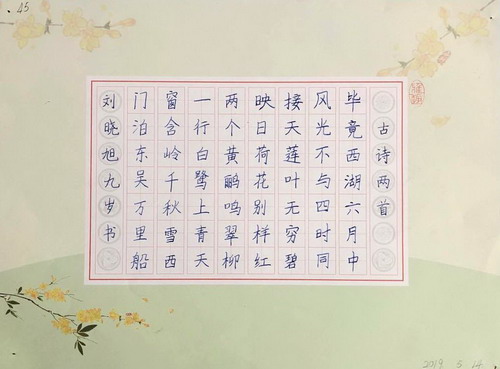 45
古诗两首
毕竟西湖六月中
风光不与四时同
接天莲叶无穷碧
映日荷花别样红
两个黄鹂鸣翠柳
一行白鹭上青天
窗含岭千秋雪西
门泊东吴万里船
刘晓旭九岁书
2019 14